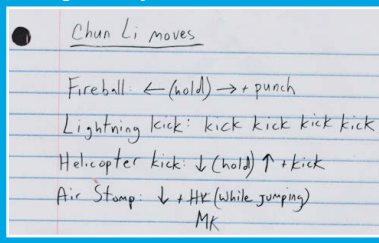 Chun Li moves
Fireball: ← (hold) → + punch
Lightning kick: kick kick kick kick
Helicopter kick: ↓ (hold) ↑ + kick
Air Stomp: ↓ + HK (while jumping)
MK